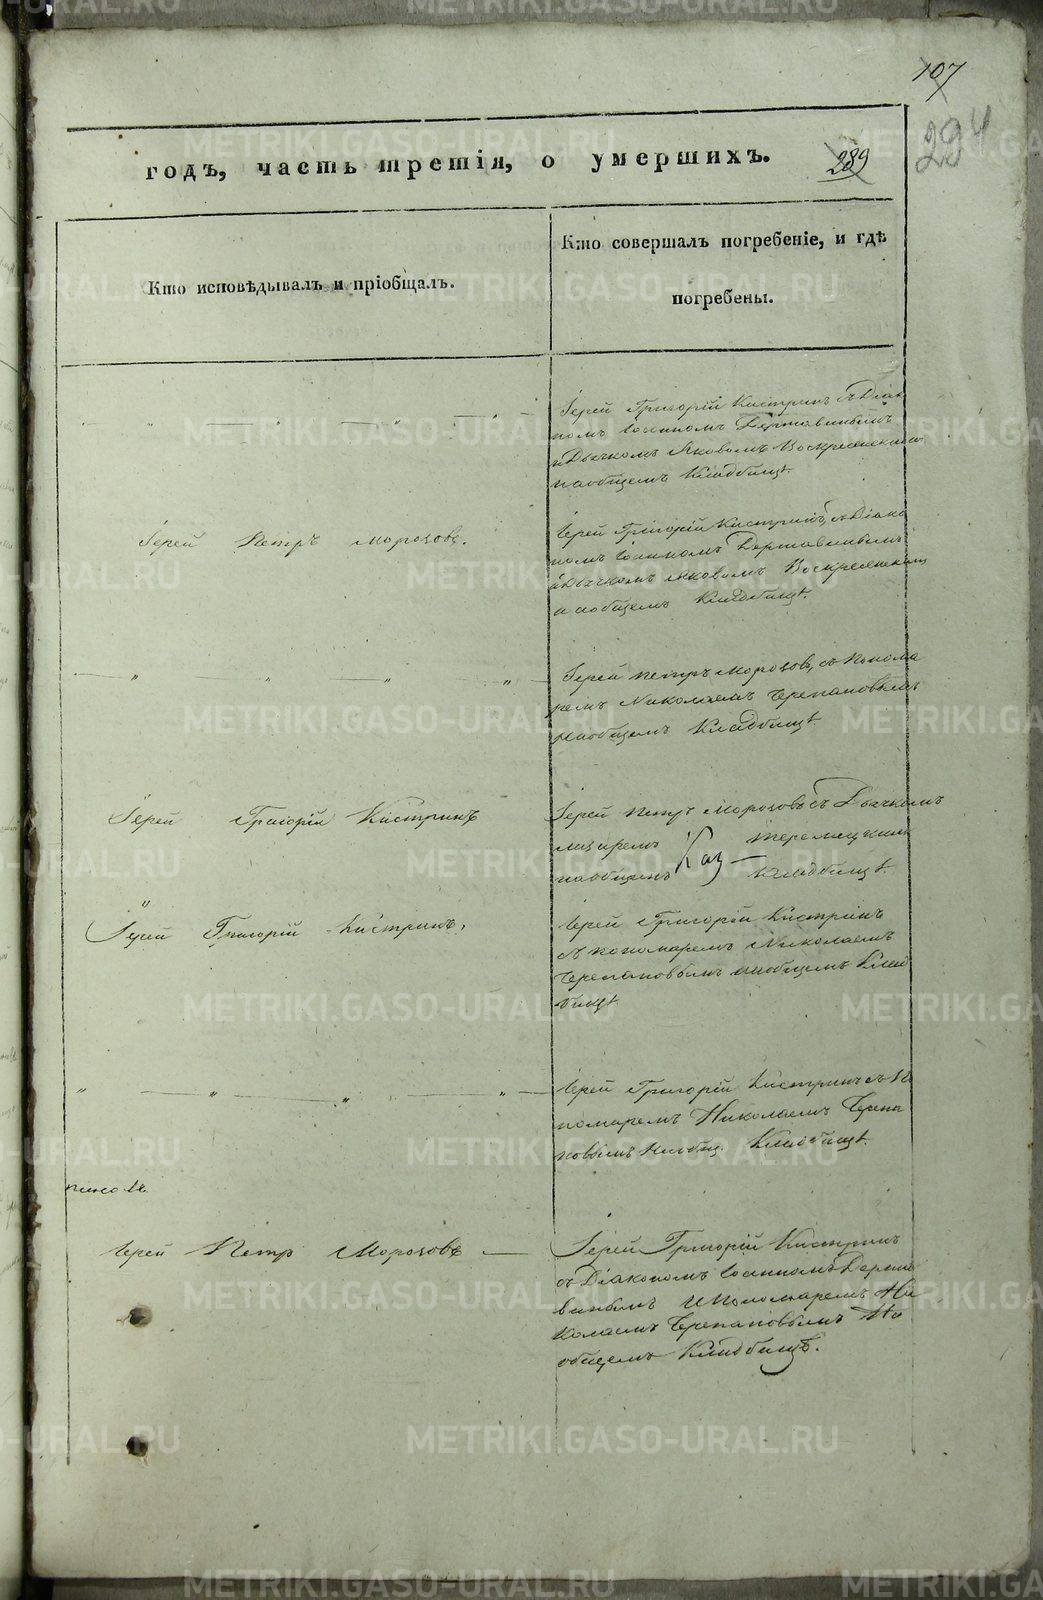 107
294
годъ, часть третія, о умершихъ.
289
Кто исповѣдывалъ и пріобщалъ.
Кто совершалъ погребеніе, и гдѣ
погребены.
Іерей Григорій Кистринъ съ Діако
номъ Іоанномъ Державинымъ
и Дьячкомъ Яковомъ Воскресенскимъ
на общемъ Кладбищѣ.
Іерей Петръ Морозовъ.
Іерей Григорій Кистринъ, съ Діако
номъ Іоанномъ Державинымъ
и Дьячкомъ Яковомъ Воскресенскимъ
на общемъ Кладбищѣ.
Іерей Петръ Морозовъ, съ Понома
ремъ Николаемъ Черепановымъ
на общемъ Кладбищѣ
Іерей Григорій Кистринъ
Іерей Петръ Морозовъ съ Дьячкомъ
Лазаремъ
на общемъ Каз — Кладбищѣ.
Іерей Григорій Кистринъ,
Іерей Григорій Кистринъ
съ пономаремъ Николаемъ
Черепановымъ на общемъ Клад
бищѣ
Іерей Григорій Кистринъ съ По
номаремъ Николаемъ Черепа
новымъ на общ. Кладбищѣ.
Іерей Петръ Морозовъ
Іерей Григорій Кистринъ
съ Діакономъ Іоанномъ Держа
винымъ и Пономаремъ Ни
колаемъ Черепановымъ На
общемъ Кладбищѣ.
METRIKI.GASO-URAL.RU